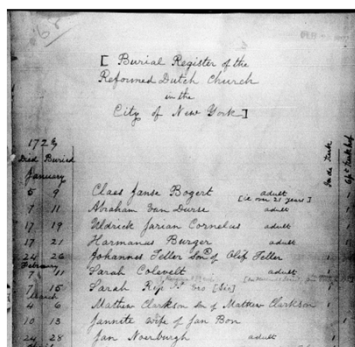 [ Burial Register of the
Reformed Dutch Church
in the
City of New York ]
Died Buried
January
5 9 Claes Janse Bogert adult
[i.e. over 21 years]
7 11 Abraham Van Durse adult
17 19 Uldrick Jarian Cornelus adult
17 21 Harmanus Burger adult
24 26 Johannes Teller Son of Olof Teller
February
11 Sarah Colevelt adult
7 15 Sarah
March
4 6 Mathew Clarkson Son of Mathew Clarkson
10 13 Jannite wife of Jan Bon
24 28 Jan Noorburgh adult